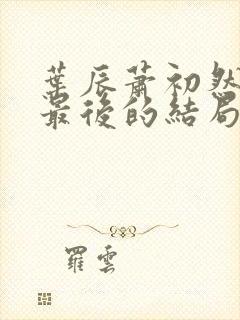 葉辰蕭初然
最後的結局
羅雲